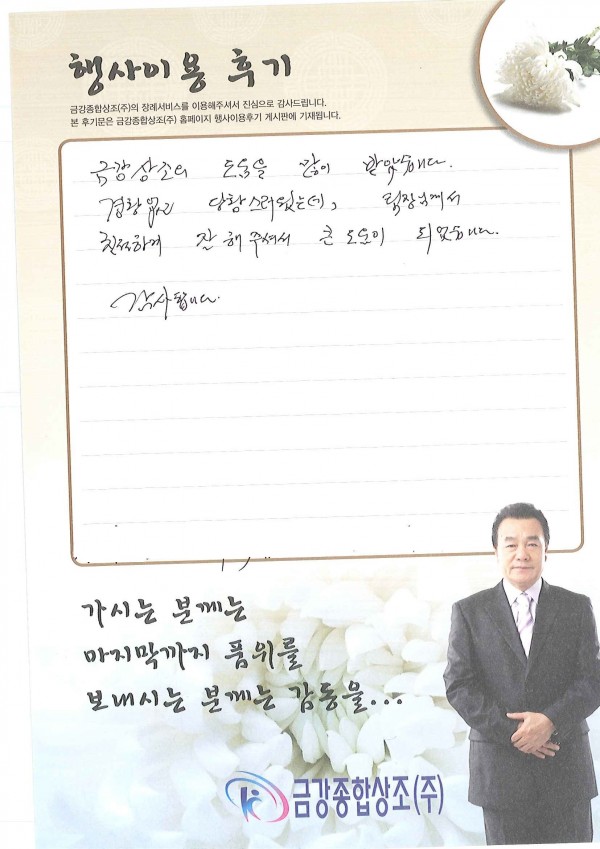 행사이용 후기
금강종합상조(주)의 장례서비스를 이용해주셔서 진심으로 감사드립니다.
본 후기문은 금강종합상조(주) 홈페이지 행사이용후기 게시판에 기재됩니다.
금강상조의 도움을 많이 받았습니다.
경황없고 당황스러웠는데, 팀장님께서
친절하게 잘 해주셔서 큰 도움이 되었습니다.
감사합니다.
가시는 분께는
마지막까지 품위를
보내시는 분께는 감동을...
금강종합상조(주)